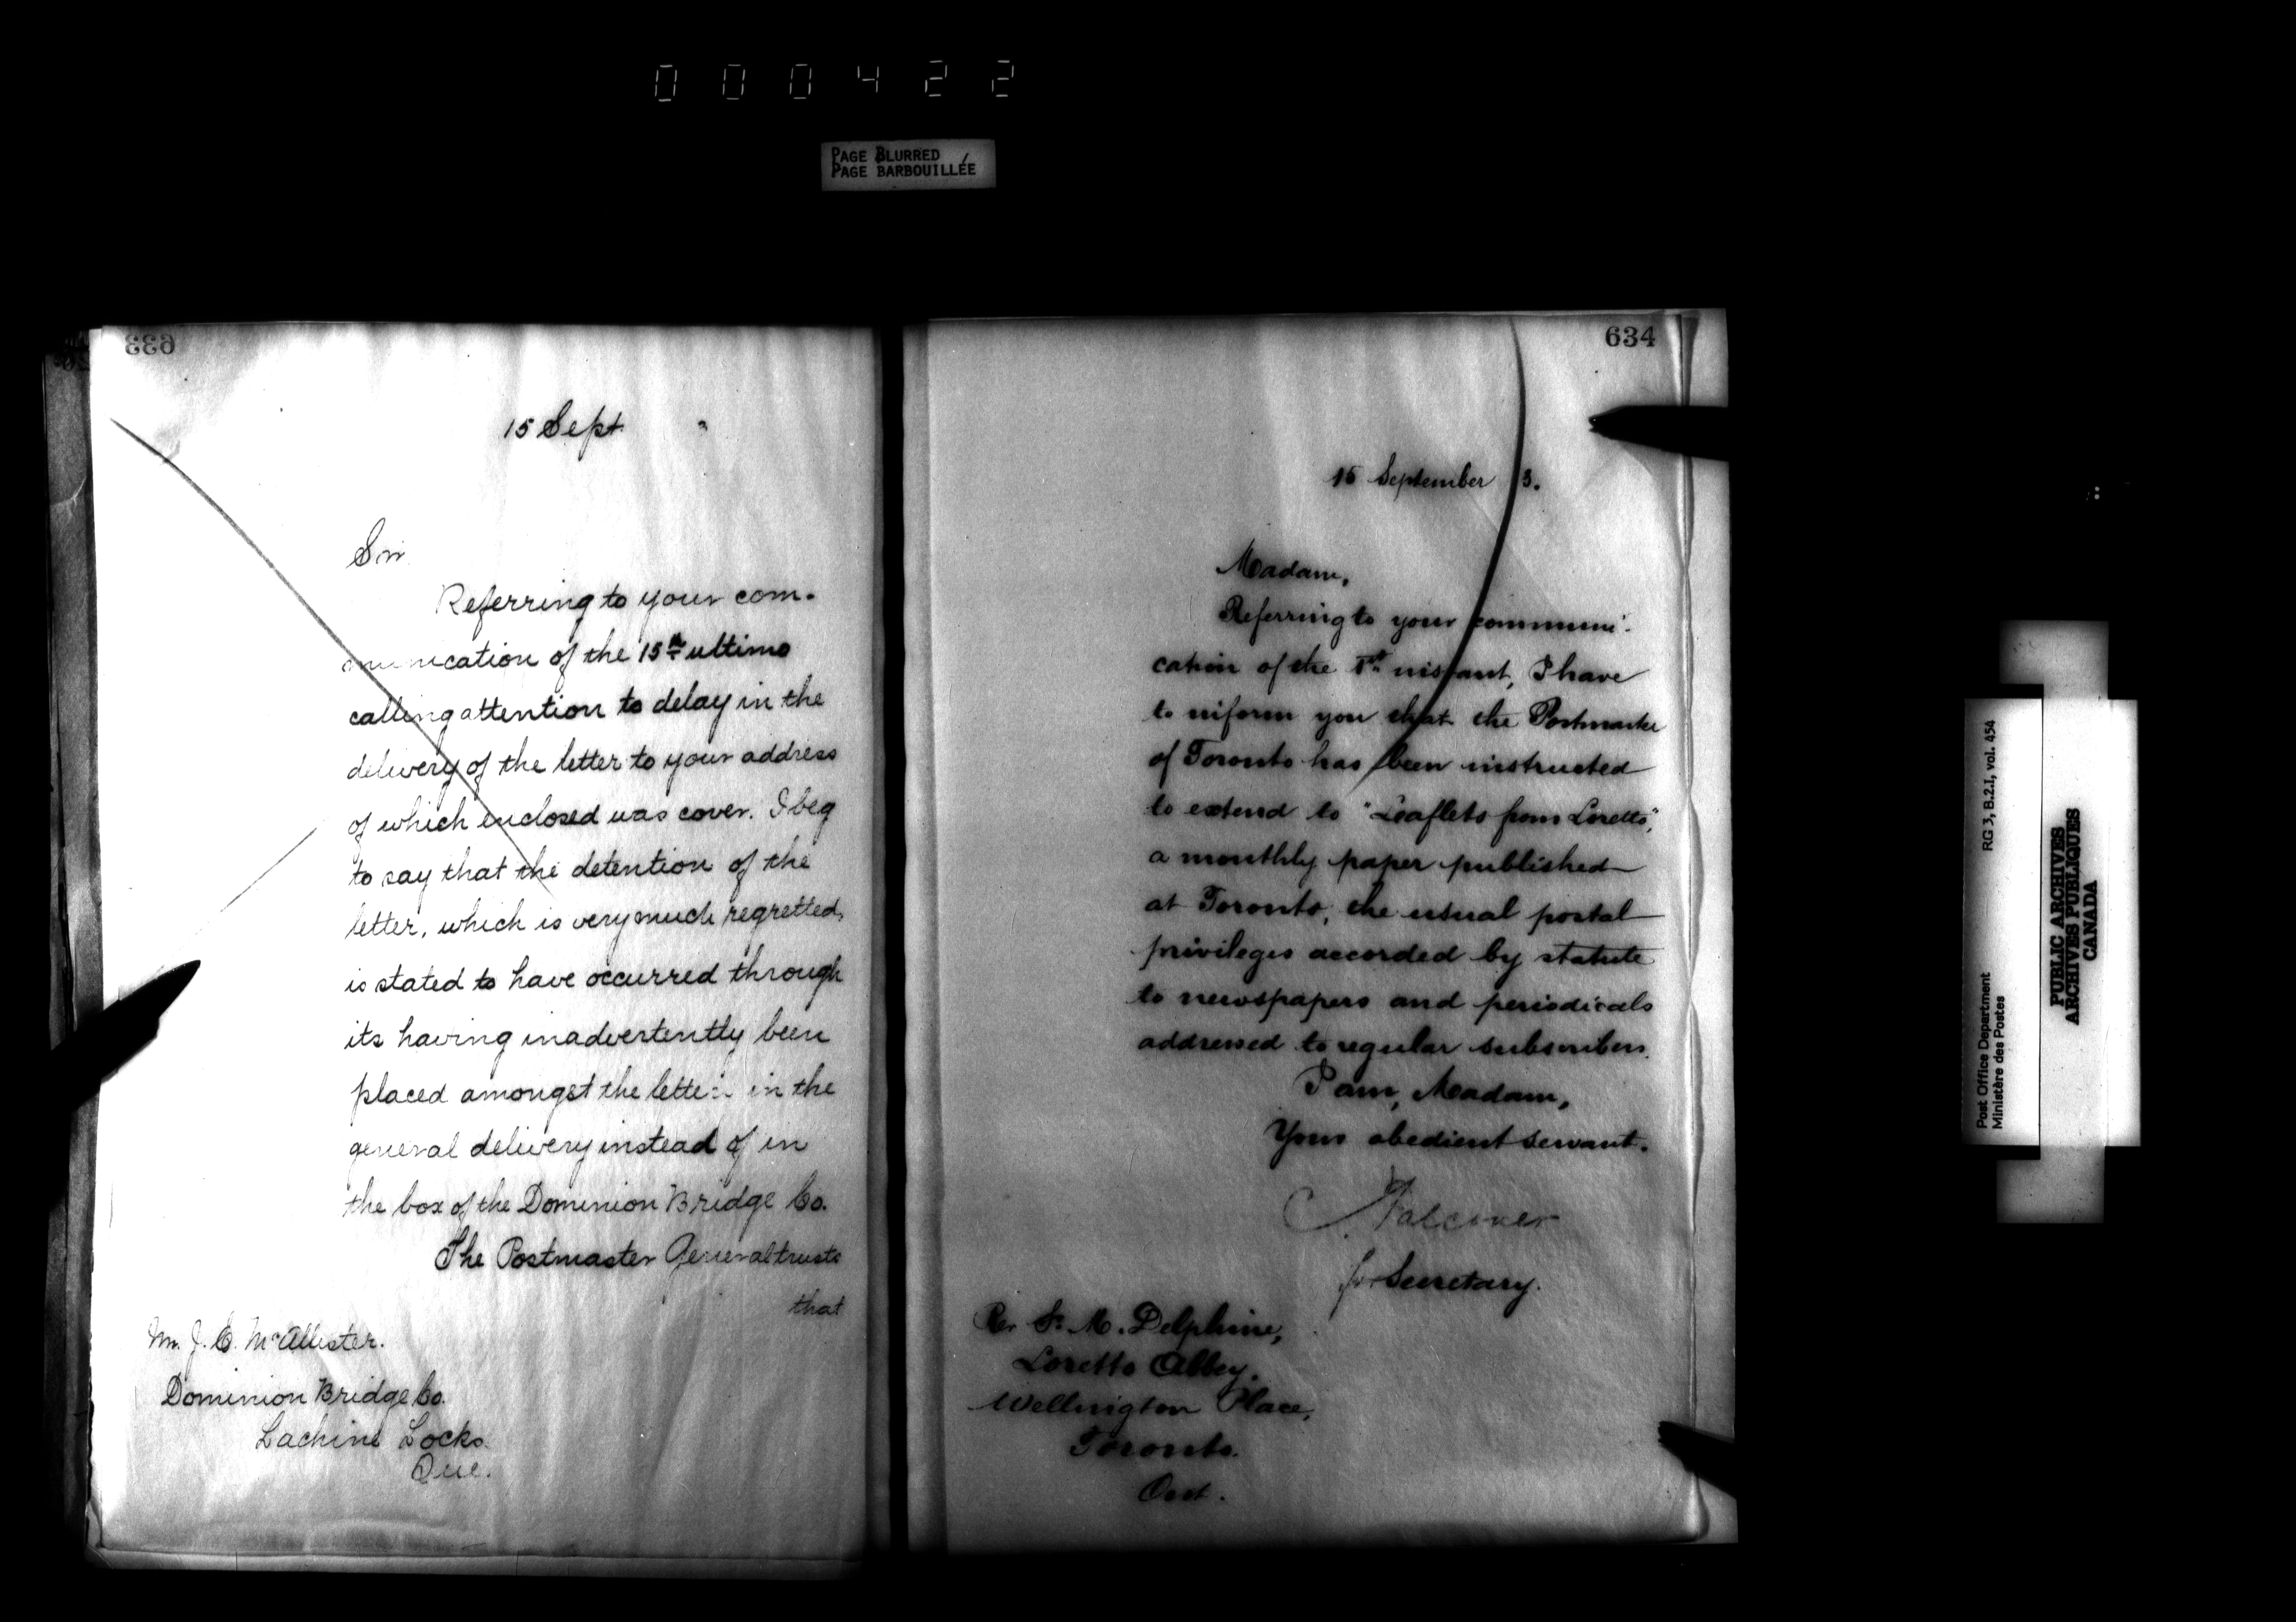 000422
PAGE BLURRED
PAGE BARBOUILLÉE
633
15 Sept. 3
Sir
Referring to your com-
munication of the 15th ultimo
calling attention to delay in the
delivery of the letter to your address
of which enclosed was cover. I beg
to say that the detention of the
letter, which is very much regretted,
is stated to have occurred through
its having inadvertently been
placed amongst the letters in the
general delivery instead of in
the box of the Dominion Bridge Co.
The Postmaster General trusts
that
Mr. J. C. McAllister.
Dominion Bridge Co.
Lachine Locks
Que.
634
15 September 3.
Madam,
Referring to your communi-
cation of the instant, I have
to inform you that the Postmaster
of Toronto has been instructed
to extend to "Leaflets from Loretto",
a monthly paper published
at Toronto, the usual postal
privileges accorded by statute
to newspapers and periodicals
addressed to regular subscribers.
I am, Madam,
Your obedient servant.
Falconer
for Secretary.
Rev Sr. M. Delphine,
Loretto Abbey.
Wellington Place,
Toronto.
Ont.
Post Office Department
Ministère des Postes
RG 3, B.2.1, vol. 454
PUBLIC ARCHIVES
ARCHIVES PUBLIQUES
CANADA